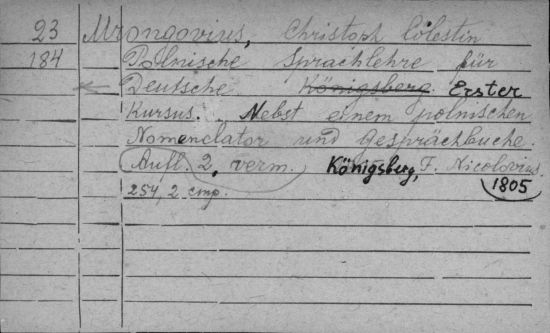 23 Mrongovius, Christoph Cölestin
184 Polnische Sprachlehre für
Deutsche. Königsberg. Erster
Kursus. Nebst einem polnischen
Nomenclator und Gesprächbuche.
Aufl. 2, verm. Königsberg, F. Nicolovius.
1805
254, 2 стр.